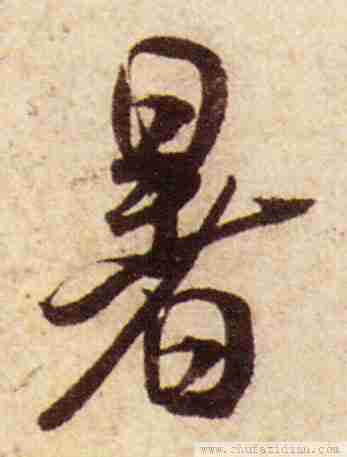 暑
www.shufazidian.com